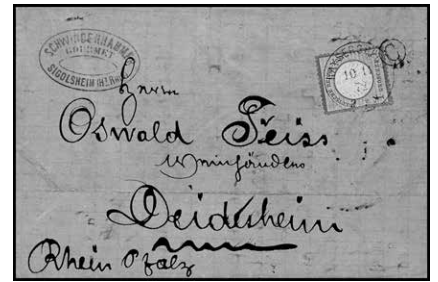 SCHWINDENHAMMER
GOURMET
SIGOLSHEIM (Ht. Rh.)
Herrn
Oswald Feiss
Weinhändler
Deidesheim
Rhein Pfalz